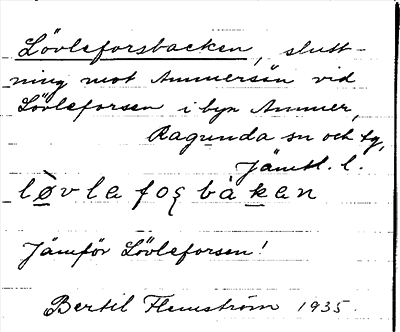 Lövleforsbacken, slutt-
ning mot Ammersån vid
Lövleforsen i byn Ammer,
Ragunda sn och tg,
Jämtl. l.
lo̱vla foʂ bàka̱n
Jämför Lövleforsen!
Bertil Flemström 1935.